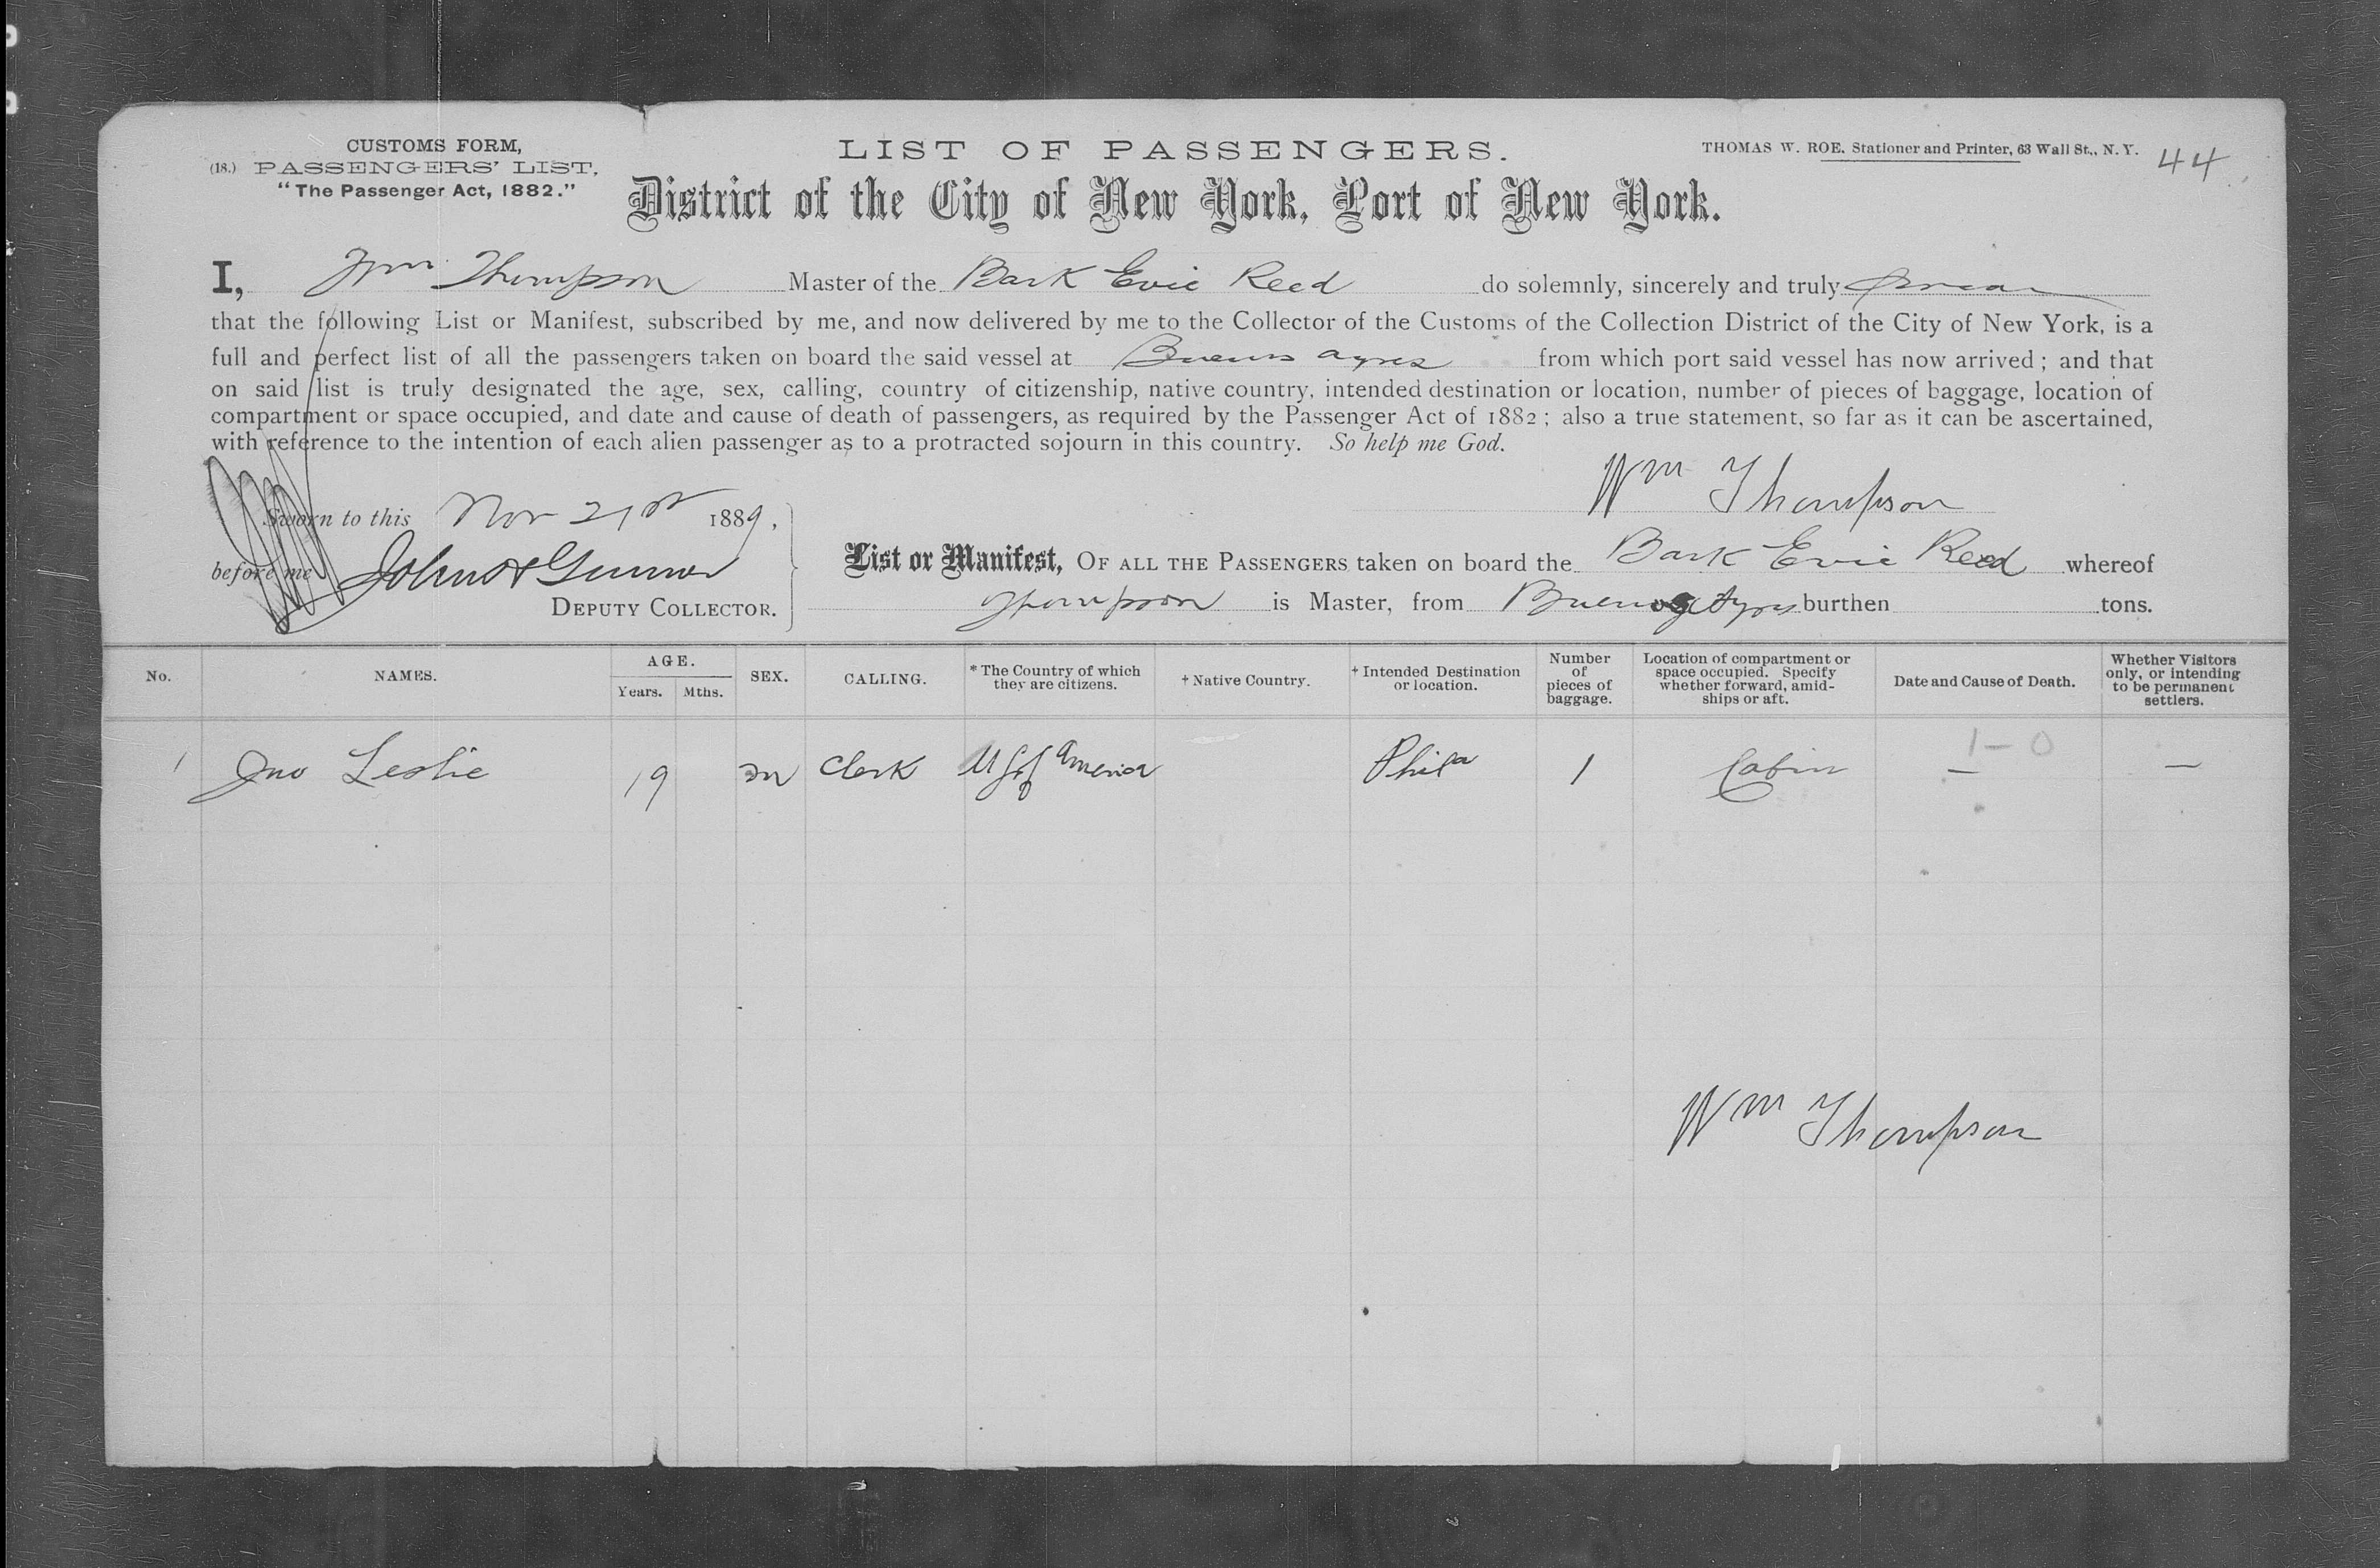 CUSTOMS FORM,
(18.) PASSENGERS' LIST,
"The Passenger Act, 1882."
LIST OF PASSENGERS.
THOMAS W. ROE, Stationer and Printer, 63 Wall St., N. Y.
44
District of the City of New York, Port of New York.
I, Wm Thompson Master of the Bark Evie Reed do solemnly, sincerely and truly swear
that the following List or Manifest, subscribed by me, and now delivered by me to the Collector of the Customs of the Collection District of the City of New York, is a
full and perfect list of all the passengers taken on board the said vessel at Buenos Ayres from which port said vessel has now arrived; and that
on said list is truly designated the age, sex, calling, country of citizenship, native country, intended destination or location, number of pieces of baggage, location of
compartment or space occupied, and date and cause of death of passengers, as required by the Passenger Act of 1882; also a true statement, so far as it can be ascertained,
with reference to the intention of each alien passenger as to a protracted sojourn in this country. So help me God.
Wm Thompson
Sworn to this Nov 21st 1889,
before me John
DEPUTY COLLECTOR.
List or Manifest, OF ALL THE PASSENGERS taken on board the Bark Evie Reed whereof
Thompson is Master, from Buenos Ayres burthen tons.
No. NAMES. AGE. Years. Mths. SEX. CALLING. * The Country of which they are citizens. † Native Country. † Intended Destination or location. Number of pieces of baggage. Location of compartment or space occupied. Specify whether forward, amid-ships or aft. Date and Cause of Death. Whether Visitors only, or intending to be permanent settlers.
1-0
1 Jno Leslie 19 m Clerk U S of America Phila 1 Cabin — —
Wm Thompson